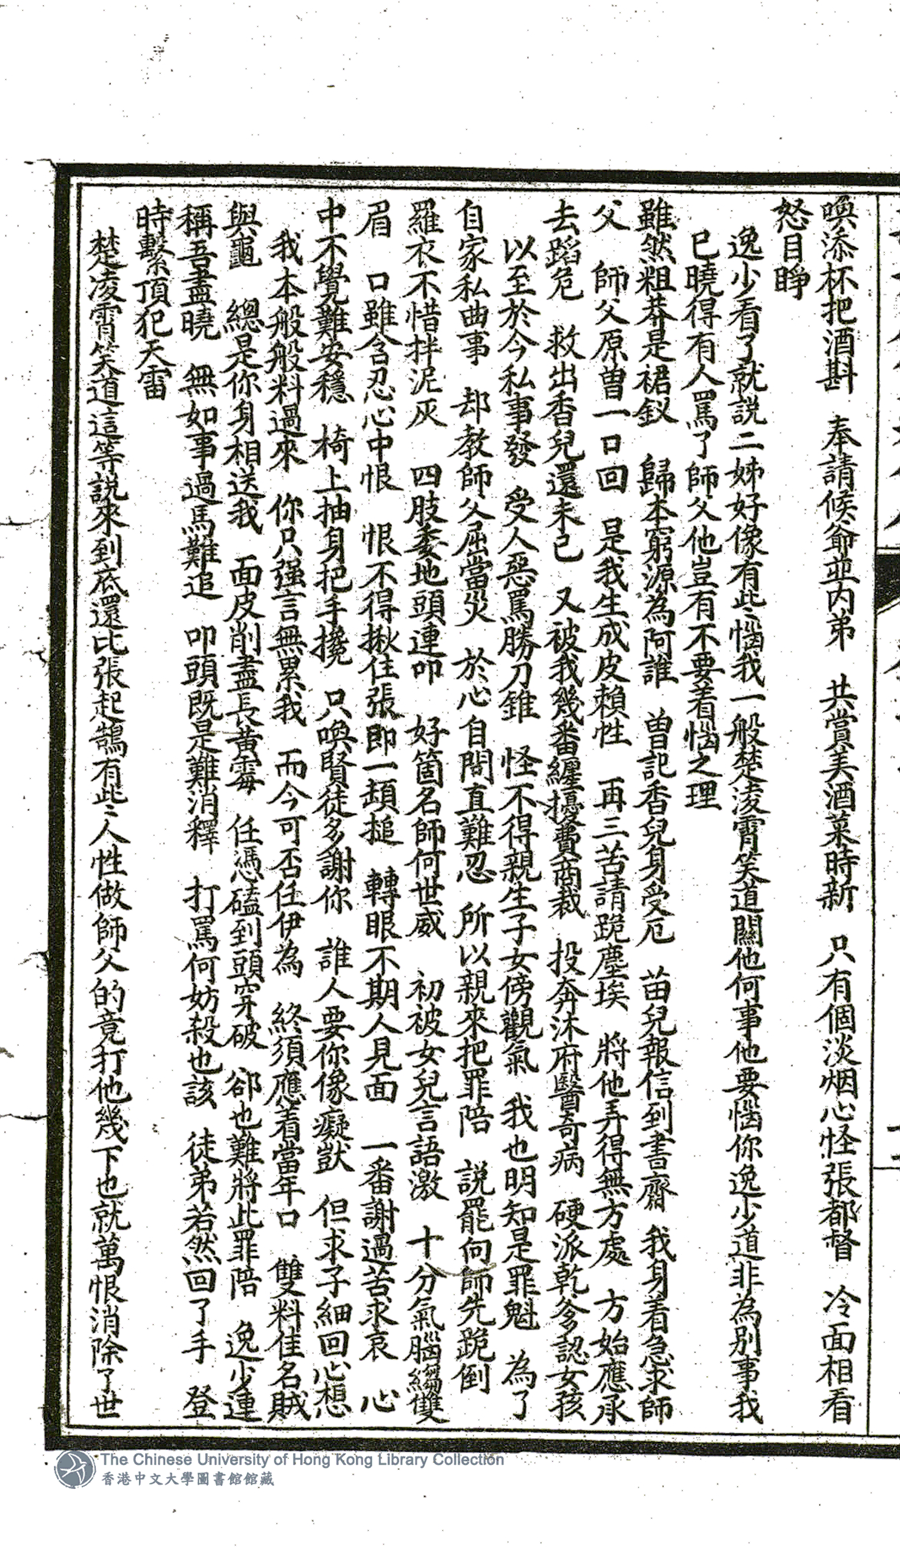 喚添杯把酒斟　奉請候爺並內弟　共賞美酒菜時新　只有個淡烟心怪張都督　冷面相看
怒目睜
逸少看了就說二姊好像有些惱我一般楚凌霄笑道關他何事他要惱你逸少道非為別事我
已曉得有人罵了師父他豈有不要着惱之理
雖然粗莽是裙釵　歸本窮源為阿誰　曾記香兒身受厄　苗兒報信到書齋　我身着急求師
父　師父原曾一口回　是我生成皮賴性　再三苦請跪塵埃　將他弄得無方處　方始應承
去蹈危　救出香兒還未已　又被我幾番纏擾費商裁　投奔沐府醫奇病　硬派乾爹認女孩
以至於今私事發　受人惡罵勝刀錐　怪不得親生子女傍觀氣　我也明知是罪魁　為了
自家私曲事　却教師父屈當災　於心自問直難忍　所以親來把罪陪　說罷向師先跪倒
羅衣不惜拌泥灰　四肢委地頭連叩　好箇名師何世威　初被女兒言語激　十分氣腦縐雙
眉　口雖含忍心中恨　恨不得揪住張郎一頓搥　轉眼不期人見面　一番謝過苦求哀　心
中不覺難安穩　椅上抽身把手攙　只喚賢徒多謝你　誰人要你像癡獃　但求子細回心想
我本般般料過來　你只强言無累我　而今可否任伊為　終須應着當年口　雙料佳名賊
與龜　總是你身相送我　面皮削盡長黃霉　任憑磕到頭穿破　卻也難將此罪陪　逸少連
稱吾盡曉　無如事過馬難追　叩頭既是難消釋　打罵何妨殺也該　徒弟若然回了手　登
時繫頂犯天雷
楚凌霄笑道這等說來到底還比張起鵠有些人性做師父的竟打他幾下也就萬恨消除了世
The Chinese University of Hong Kong Library Collection
香港中文大學圖書館館藏